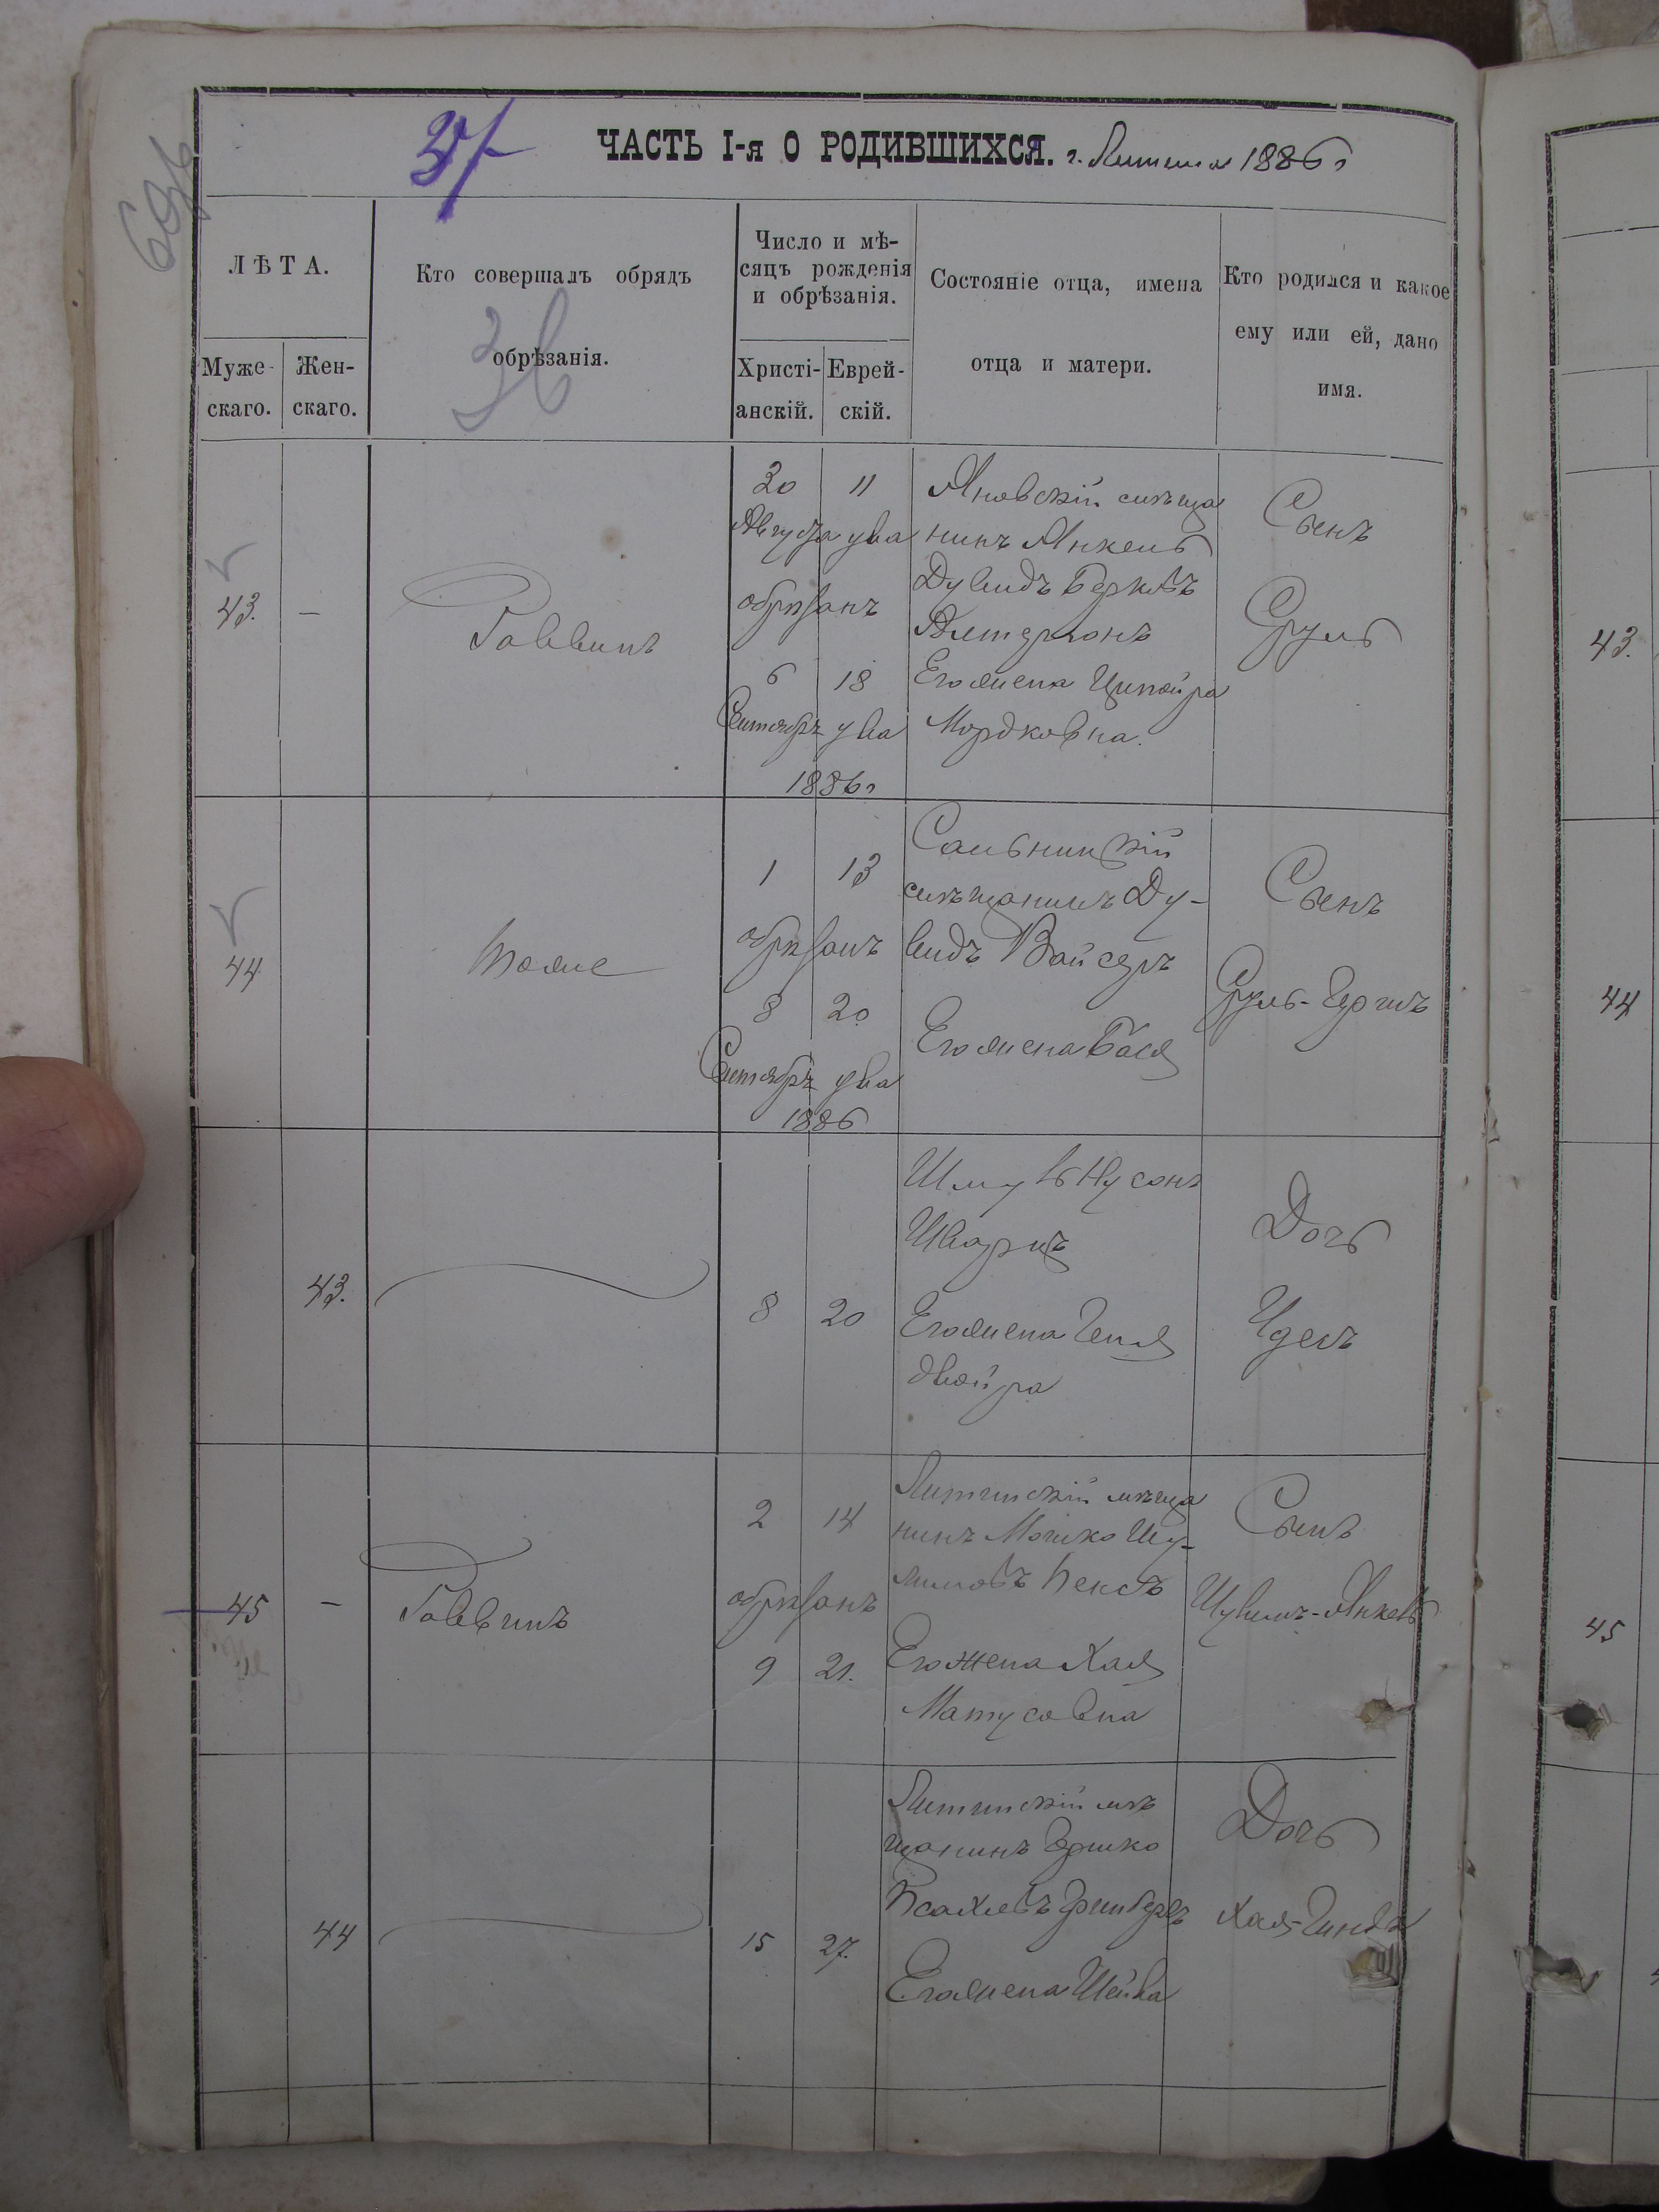 ЧАСТЬ I-я О РОДИВШИХСЯ. г. Литина 1886 г
ЛѢТА.
Муже-
скаго.
Жен-
скаго.
Кто совершалъ обрядъ
обрѣзанія.
Число и мѣ-
сяцъ рожденія
и обрѣзанія.
Христі-
анскій.
Еврей-
скій.
Состояніе отца, имена
отца и матери.
Кто родился и какое
ему или ей, дано
имя.
43.
—
Раввинъ
30 11
Августа
обрѣзанъ
6 18
Сентябрь
1886 г
Яновскій мѣща
нинъ Янкель
Дувидъ Берковъ
Альтерманъ
Его жена Ципойра
Мордковна.
Сынъ
Сруль
44
Тоже
1 13
обрѣзанъ
8 20
Сентябрь
1886
Сальницкій
мѣщанинъ Ду-
видъ Вайсеръ
Его жена Бася
Сынъ
Сруль-Гершъ
43.
8 20
Шмуль Нусонъ
Шварцъ
Его жена Геня
двойра
Дочь
Удель
45
—
Раввинъ
2 14
обрѣзанъ
9 21.
Литинскій мѣща
нинъ Мошко Шу-
лимовъ
Его жена Хая
Матусовна
Сынъ
Шулимъ-Янкель
44
15 27.
Литинскій мѣ
щанинъ Гершко
Псахевъ Гринбергъ
Его жена Шейва
Дочь
Хая-Гинда
43.
44
45